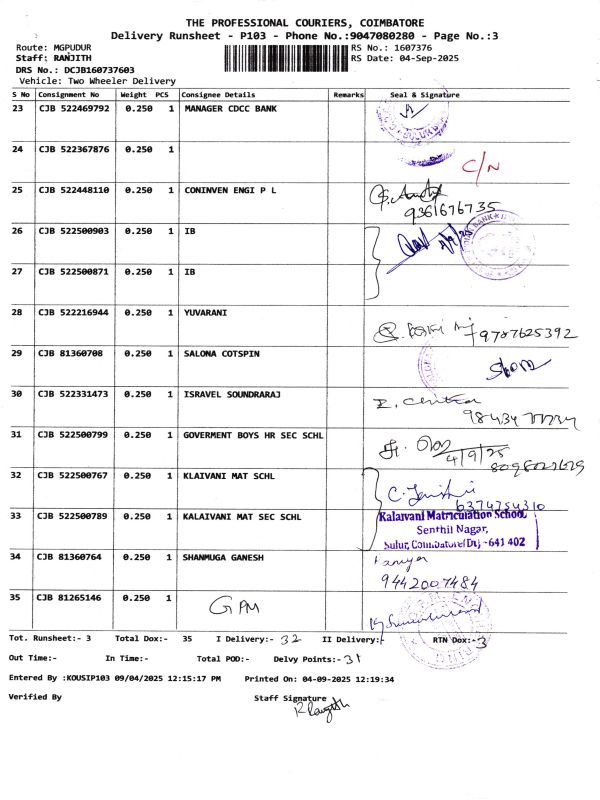 THE PROFESSIONAL COURIERS, COIMBATORE
Delivery Runsheet - P103 - Phone No.:9047080280 - Page No.:3
Route: MGPUDUR RS No.: 1607376
Staff: RANJITH RS Date: 04-Sep-2025
DRS No.: DCJB160737603
Vehicle: Two Wheeler Delivery
S No Consignment No Weight PCS Consignee Details Remarks Seal & Signature
23 CJB 522469792 0.250 1 MANAGER CDCC BANK
24 CJB 522367876 0.250 1
C/N
25 CJB 522448110 0.250 1 CONINVEN ENGI P L
9361676735
26 CJB 522500903 0.250 1 IB
27 CJB 522500871 0.250 1 IB
28 CJB 522216944 0.250 1 YUVARANI
9787625392
29 CJB 81360708 0.250 1 SALONA COTSPIN
30 CJB 522331473 0.250 1 ISRAVEL SOUNDRARAJ
31 CJB 522500799 0.250 1 GOVERMENT BOYS HR SEC SCHL
4/9/25
32 CJB 522500767 0.250 1 KLAIVANI MAT SCHL
6374754310
33 CJB 522500789 0.250 1 KALAIVANI MAT SEC SCHL Kalaivani Matriculation School
Senthil Nagar,
Sulur, Coimbatore(Dt) - 641 402
34 CJB 81360764 0.250 1 SHANMUGA GANESH
9442007484
35 CJB 81265146 0.250 1 GPM
Tot. Runsheet:- 3 Total Dox:- 35 I Delivery:- 32 II Delivery:- RTN Dox:- 3
Out Time:- In Time:- Total POD:- Delvy Points:- 31
Entered By :KOUSIP103 09/04/2025 12:15:17 PM Printed On: 04-09-2025 12:19:34
Verified By Staff Signature